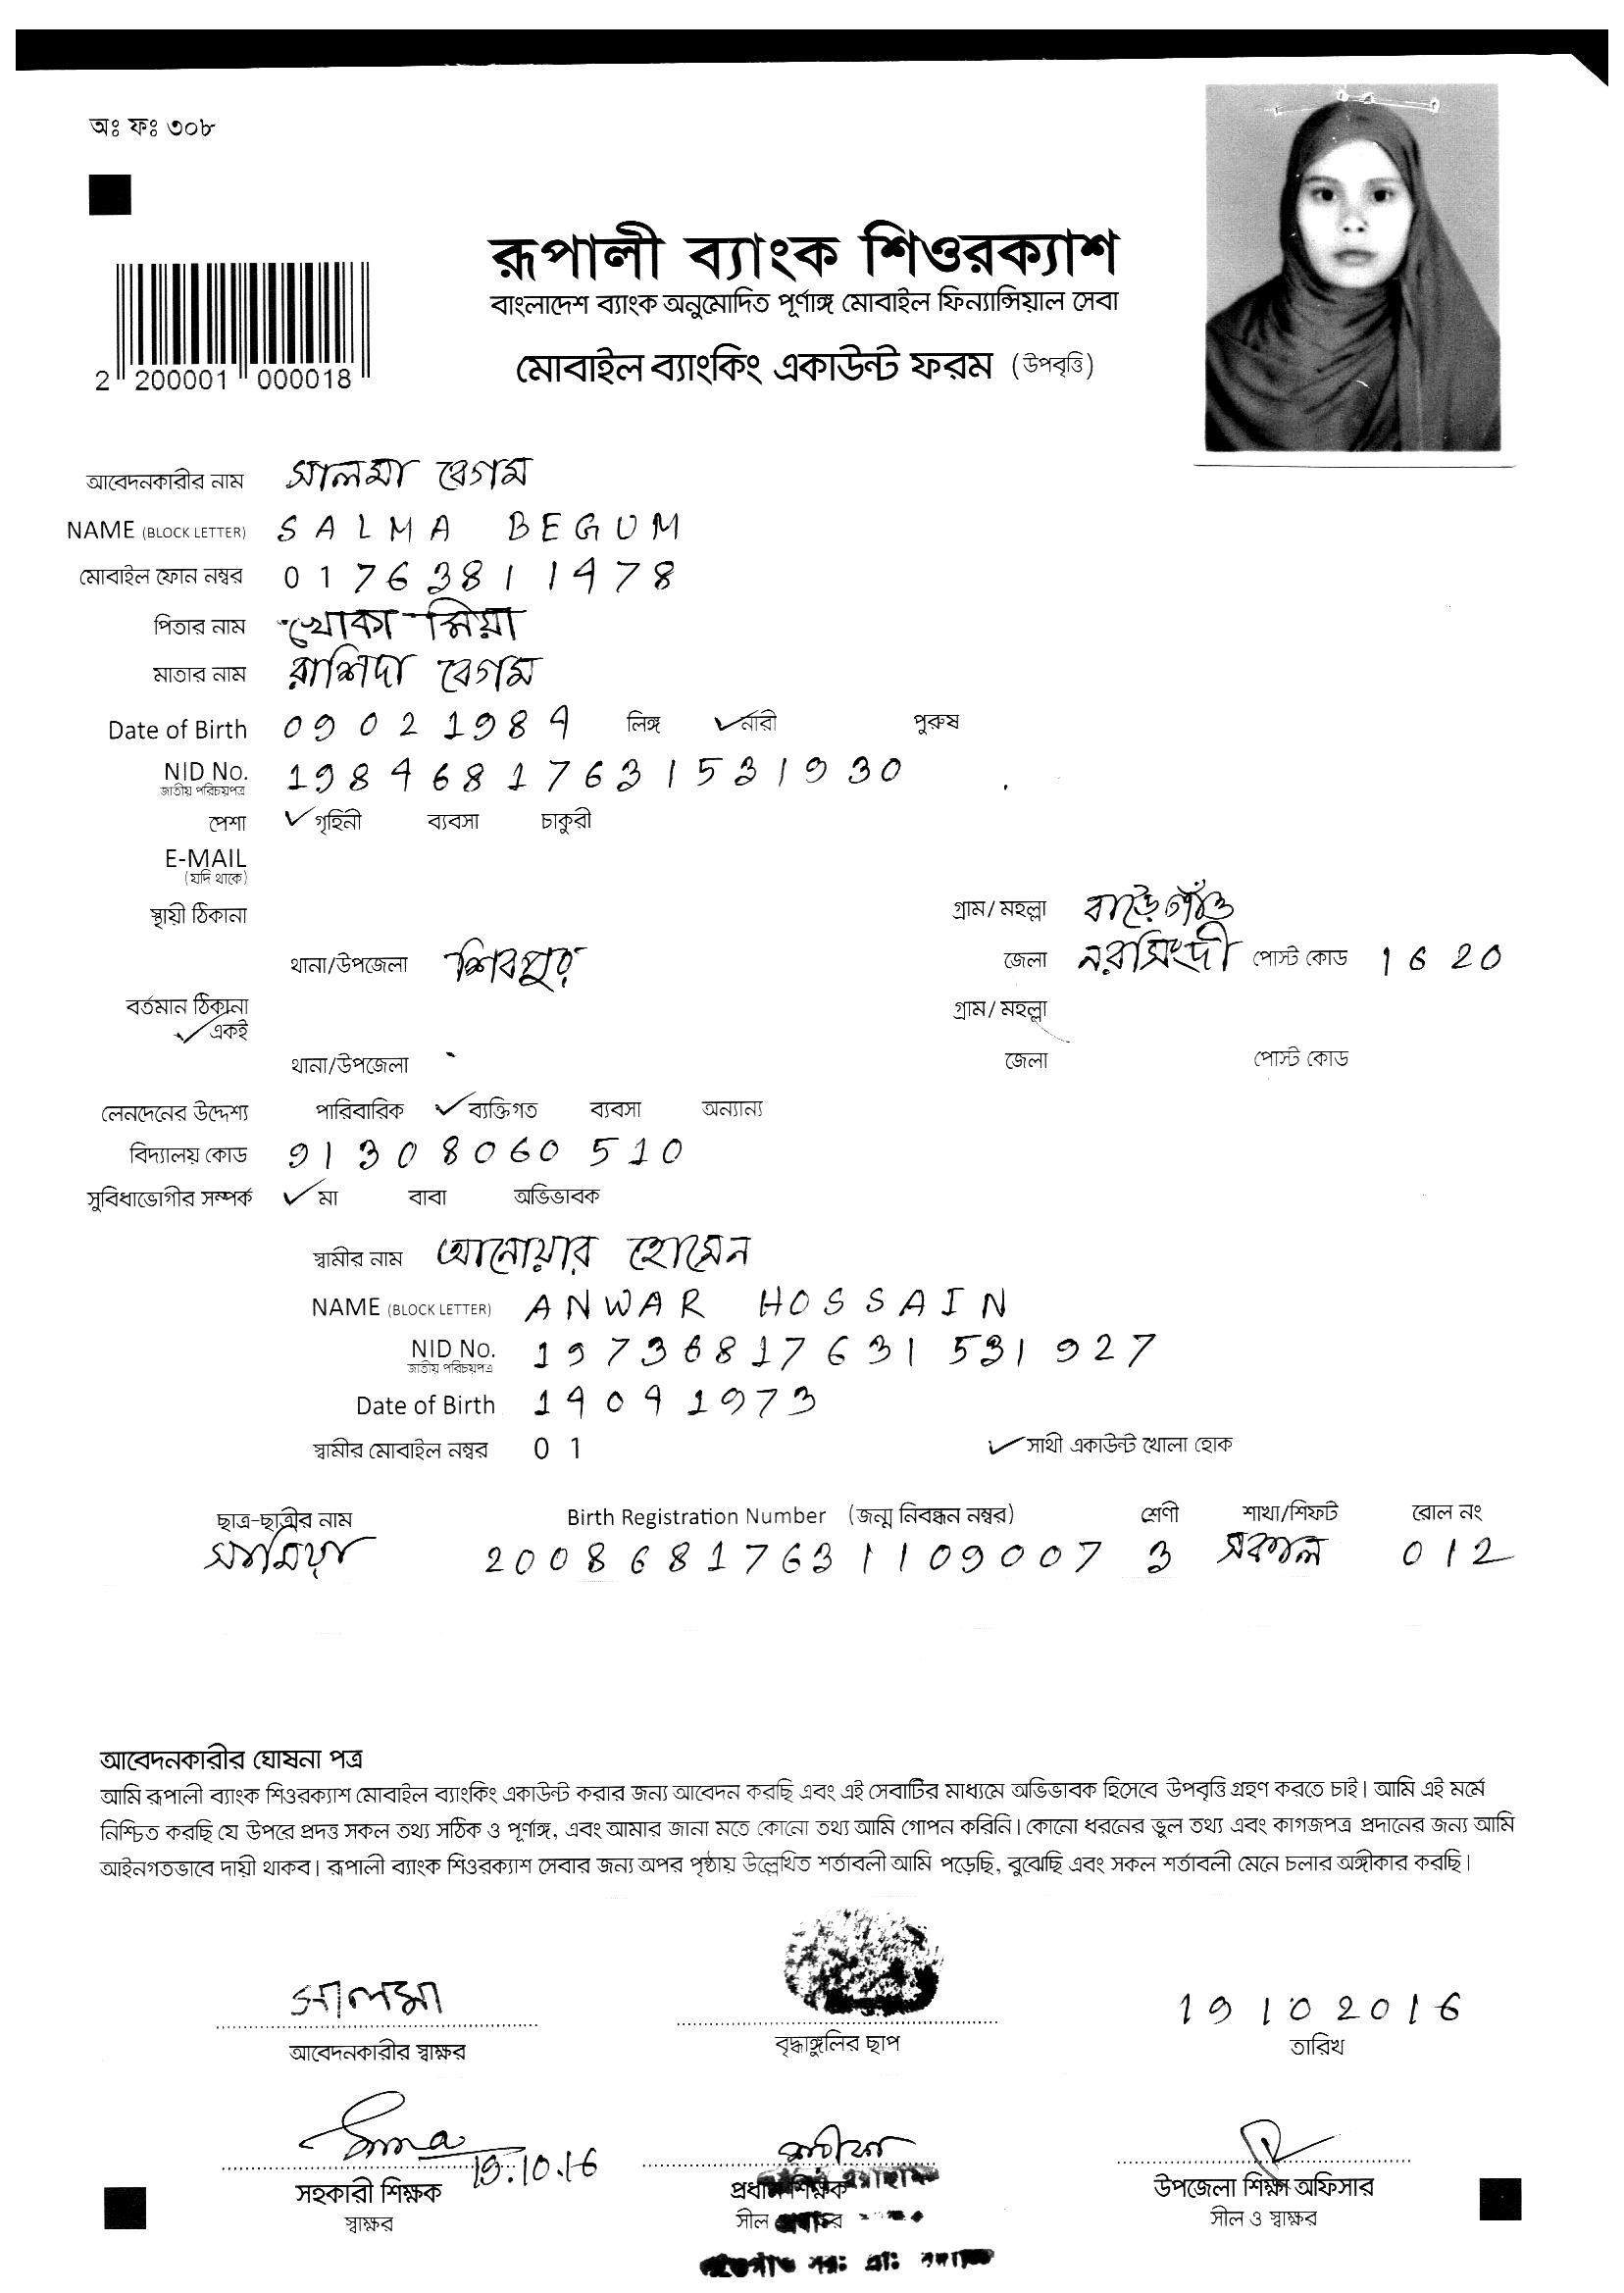 অঃ ফঃ ৩০৮
রূপালী ব্যাংক শিওরক্যাশ
বাংলাদেশ ব্যাংক অনুমোদিত পূর্ণাঙ্গ মোবাইল ফিন্যান্সিয়াল সেবা
2 200001 000018
মোবাইল ব্যাংকিং একাউন্ট ফরম (উপবৃত্তি)
আবেদনকারীর নাম সালমা বেগম
NAME (BLOCK LETTER) SALMA BEGUM
মোবাইল ফোন নম্বর 01763811478
পিতার নাম খোকা মিয়া
মাতার নাম রাশিদা বেগম
Date of Birth 09021984 লিঙ্গ নারী পুরুষ
NID No. 19846817631531930
জাতীয় পরিচয়পত্র
পেশা গৃহিনী ব্যবসা চাকুরী
E-MAIL
(যদি থাকে)
স্থায়ী ঠিকানা গ্রাম/ মহল্লা বাড়ৈগাঁও
থানা/উপজেলা শিবপুর জেলা নরসিংদী পোস্ট কোড 1620
বর্তমান ঠিকানা গ্রাম/ মহল্লা
একই
থানা/উপজেলা জেলা পোস্ট কোড
লেনদেনের উদ্দেশ্য পারিবারিক ব্যক্তিগত ব্যবসা অন্যান্য
বিদ্যালয় কোড 91308060510
সুবিধাভোগীর সম্পর্ক মা বাবা অভিভাবক
স্বামীর নাম আনোয়ার হোসেন
NAME (BLOCK LETTER) ANWAR HOSSAIN
NID No. 19736817631531927
জাতীয় পরিচয়পত্র
Date of Birth 14041973
স্বামীর মোবাইল নম্বর 01 সাথী একাউন্ট খোলা হোক
ছাত্র-ছাত্রীর নাম Birth Registration Number (জন্ম নিবন্ধন নম্বর) শ্রেণী শাখা/শিফট রোল নং
20086817631109007 3 সকাল 012
আবেদনকারীর ঘোষনা পত্র
আমি রূপালী ব্যাংক শিওরক্যাশ মোবাইল ব্যাংকিং একাউন্ট করার জন্য আবেদন করছি এবং এই সেবাটির মাধ্যমে অভিভাবক হিসেবে উপবৃত্তি গ্রহণ করতে চাই। আমি এই মর্মে
নিশ্চিত করছি যে উপরে প্রদত্ত সকল তথ্য সঠিক ও পূর্ণাঙ্গ, এবং আমার জানা মতে কোনো তথ্য আমি গোপন করিনি। কোনো ধরনের ভুল তথ্য এবং কাগজপত্র প্রদানের জন্য আমি
আইনগতভাবে দায়ী থাকব। রূপালী ব্যাংক শিওরক্যাশ সেবার জন্য অপর পৃষ্ঠায় উল্লেখিত শর্তাবলী আমি পড়েছি, বুঝেছি এবং সকল শর্তাবলী মেনে চলার অঙ্গীকার করছি।
সালমা 19102016
আবেদনকারীর স্বাক্ষর বৃদ্ধাঙ্গুলির ছাপ তারিখ
19.10.16
সহকারী শিক্ষক প্রধান শিক্ষক উপজেলা শিক্ষা অফিসার
স্বাক্ষর সীল সীল ও স্বাক্ষর